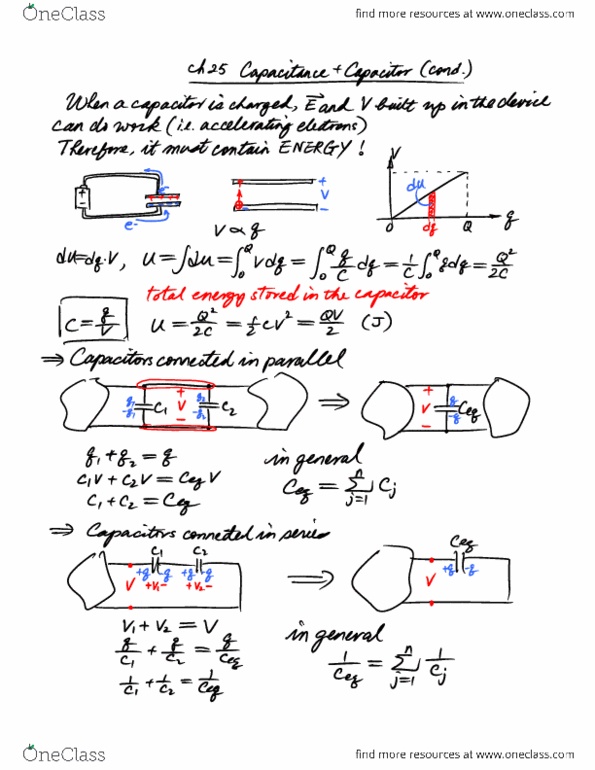 OneClass
find more resources at www.oneclass.com
ch25 Capacitance + Capacitor (cond.)
When a capacitor is charged, E⃗ and V built up in the device
can do work (i.e. accelerating electrons)
Therefore, it must contain ENERGY!
e- e- + V - V dU 0 dq Q q
V ∝ q
dU=dq·V, U = ∫dU = ∫₀^Q Vdq = ∫₀^Q q/C dq = 1/C ∫₀^Q qdq = Q²/2C
total energy stored in the capacitor
C = q/V U = Q²/2C = 1/2 CV² = QV/2 (J)
⇒ Capacitors connected in parallel
q₁ -q₁ C₁ + V - q₂ -q₂ C₂ ⇒ + V - q -q Ceq
q₁ + q₂ = q in general
C₁V + C₂V = Ceq V Ceq = Σ_{j=1}^{n} Cj
C₁ + C₂ = Ceq
⇒ Capacitors connected in series
C₁ C₂ Ceq
V +q -q +q -q +V₁- +V₂- ⇒ V +q -q
V₁ + V₂ = V in general
q/C₁ + q/C₂ = q/Ceq 1/Ceq = Σ_{j=1}^{n} 1/Cj
1/C₁ + 1/C₂ = 1/Ceq
OneClass
find more resources at www.oneclass.com